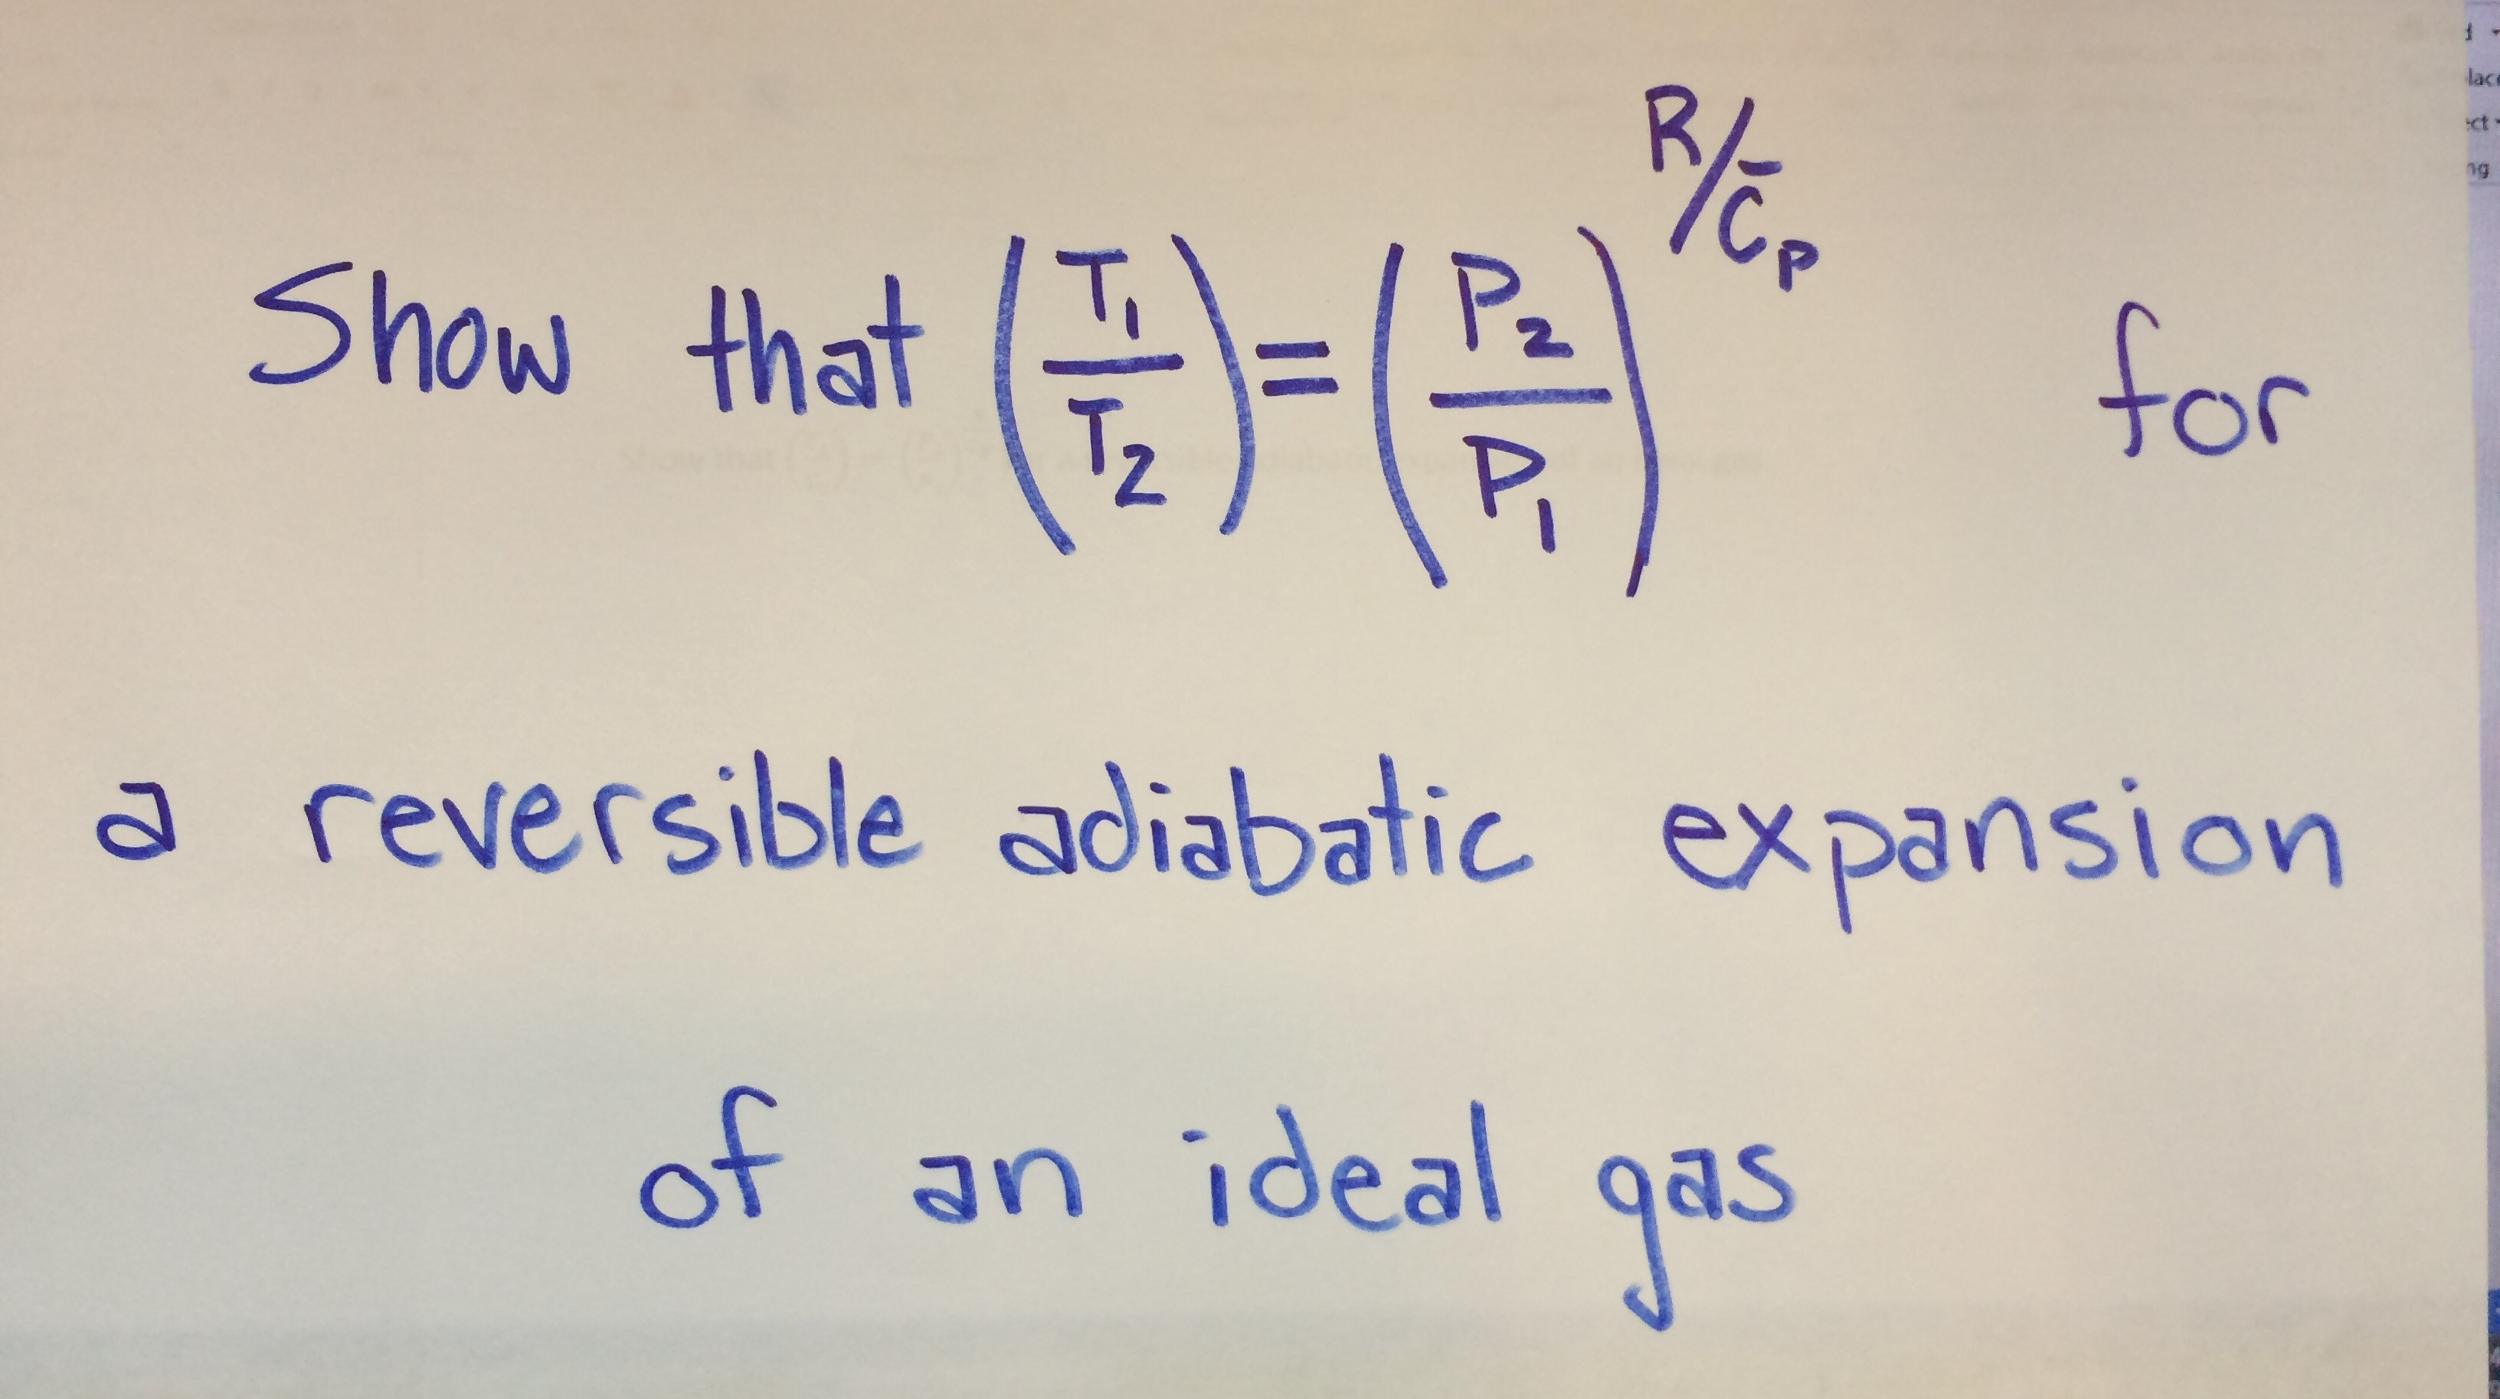 Show that (T₁/T₂) = (P₂/P₁)^(R/C̄ₚ) for
a reversible adiabatic expansion
of an ideal gas